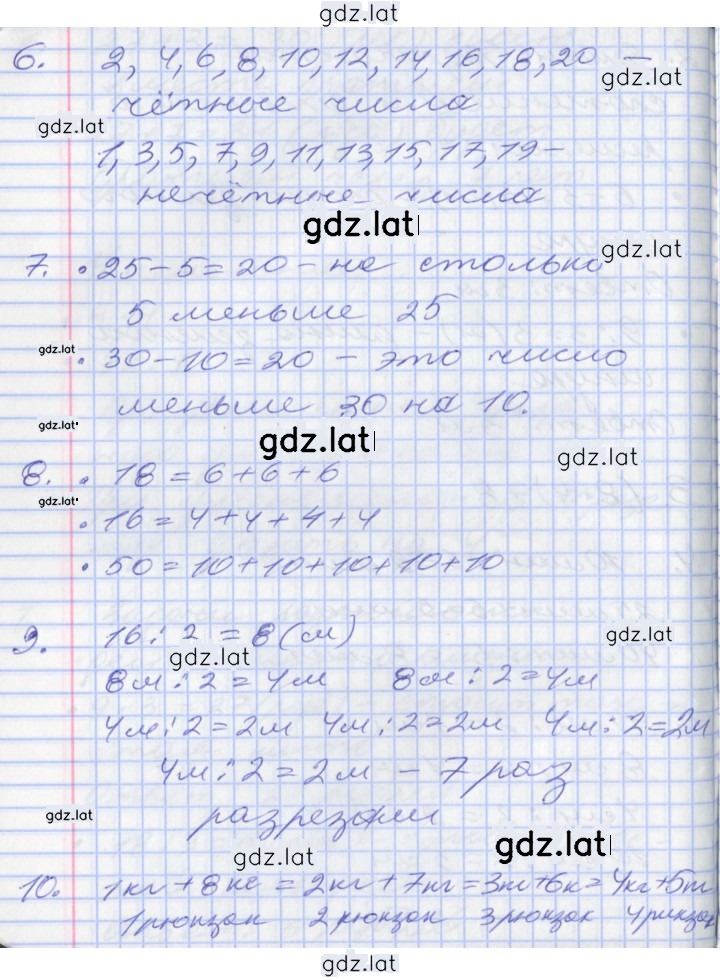 gdz.lat
6. 2, 4, 6, 8, 10, 12, 14, 16, 18, 20 —
gdz.lat
чётные числа
gdz.lat
1, 3, 5, 7, 9, 11, 13, 15, 17, 19 –
нечётные числа
gdz.lat
gdz.lat
7. • 25 – 5 = 20 – на столько
5 меньше 25
gdz.lat
• 30 – 10 = 20 – это число
меньше 30 на 10.
gdz.lat
gdz.lat
gdz.lat
8. • 18 = 6 + 6 + 6
gdz.lat
• 16 = 4 + 4 + 4 + 4
• 50 = 10 + 10 + 10 + 10 + 10
9. 16 : 2 = 8 (м)
gdz.lat
gdz.lat
8м : 2 = 4м 8м : 2 = 4м
4м : 2 = 2м 4м : 2 = 2м 4м : 2 = 2м
4м : 2 = 2м – 7 раз
gdz.lat
разрезали
gdz.lat
gdz.lat
10. 1кг + 8кг = 2кг + 7кг = 3кг + 6к = 4кг + 5кг
1 рюкзак 2 рюкзак 3 рюкзак 4 рюкзак
gdz.lat